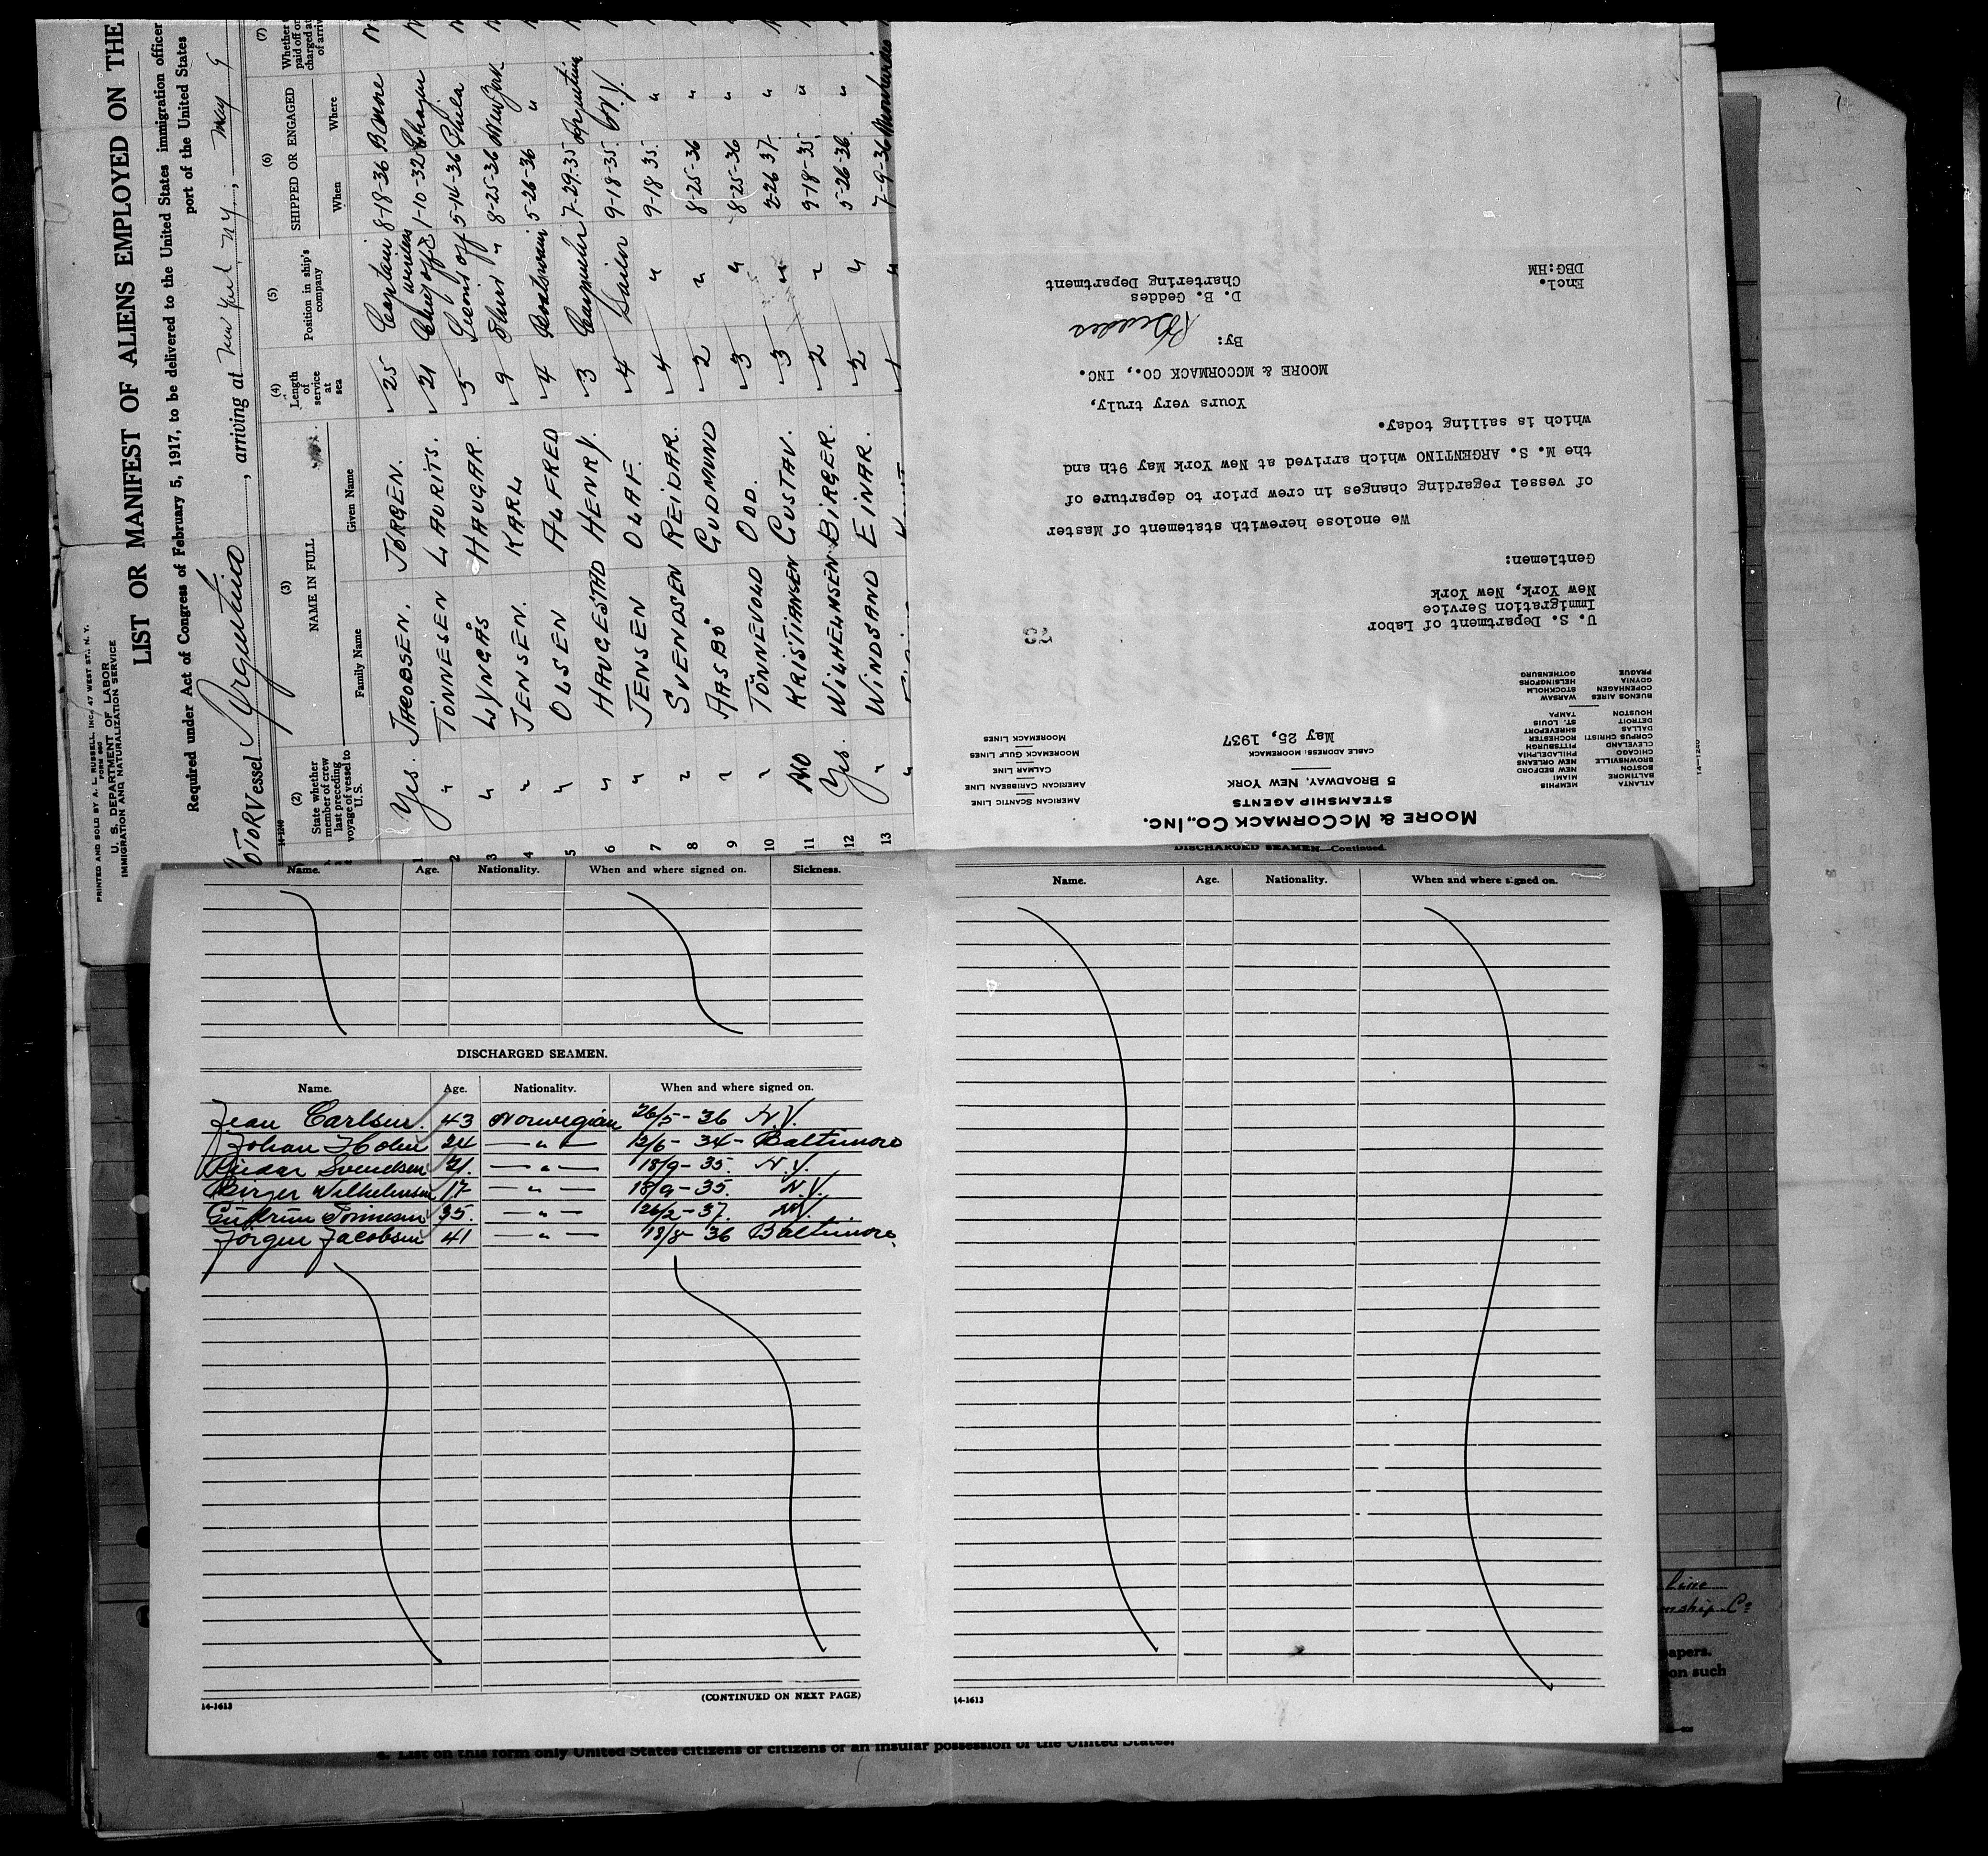 PRINTED AND SOLD BY A. L. RUSSELL, INC., 47 WEST ST., N. Y.
FORM 680
U. S. DEPARTMENT OF LABOR
IMMIGRATION AND NATURALIZATION SERVICE
LIST OR MANIFEST OF ALIENS EMPLOYED ON THE
Required under Act of Congress of February 5, 1917, to be delivered to the United States immigration officer
port of the United States
Vessel Argentino, arriving at New York N.Y., May 9
14-1240
(2) (3) (4) (5) (6) (7)
State whether member of crew last preceding voyage of vessel to U. S.
NAME IN FULL
Family Name Given Name
Length of service at sea
Position in ship's company
SHIPPED OR ENGAGED
When Where
Whether
paid off or
charged at
of arriv
1 Yes. JACOBSEN. JÖRGEN. 25 Captain 8-18-36
2 " TÖNNESEN LAURITS. 21 1-10-32
3 " LYNGÅS HAUGAR. 5 5-14-36 Phila
4 " JENSEN. KARL 9 " 8-25-36 New York
5 " OLSEN ALFRED 4 Boatswain 5-26-36 "
6 " HAUGESTAD HENRY. 3 Carpenter 7-29-35 Argentine
7 " JENSEN OLAF. 4 Sailor 9-18-35. N.Y.
8 " SVENDSEN REIDAR. 4 " 9-18-35. "
9 " AASBÖ GUDMUND 2 " 8-25-36 "
10 " TÖNNEVOLD ODD. 3 " 8-25-36 "
11 NO KRISTIANSEN GUSTAV. 3 " 2-26-37. "
12 Yes. WILHELMSEN BIRGER. 2 " 9-18-35. "
13 " WINDSAND EINAR. 2 " 5-26-36. "
" 1 " 7-9-36
MOORE & MCCORMACK CO., INC.
STEAMSHIP AGENTS
5 BROADWAY, NEW YORK
CABLE ADDRESS: MOOREMACK
AMERICAN SCANTIC LINE
AMERICAN CARIBBEAN LINE
CALMAR LINE
MOOREMACK GULF LINES
MOOREMACK LINES
ATLANTA MEMPHIS
BALTIMORE MIAMI
BOSTON NEW BEDFORD
BROWNSVILLE NEW ORLEANS
CHICAGO PHILADELPHIA
CLEVELAND PITTSBURGH
CORPUS CHRISTI ROCHESTER
DALLAS SHREVEPORT
DETROIT ST. LOUIS
HOUSTON TAMPA
BUENOS AIRES WARSAW
COPENHAGEN STOCKHOLM
GDYNIA HELSINGFORS
PRAGUE GOTHENBURG
May 25, 1937
U. S. Department of Labor
Immigration Service
New York, New York
Gentlemen:
We enclose herewith statement of Master
of vessel regarding changes in crew prior to departure of
the M. S. ARGENTINO which arrived at New York May 9th and
which is sailing today.
Yours very truly,
MOORE & MCCORMACK CO., INC.
By:
D. B. Geddes
Chartering Department
Encl.
DBG:HM
Name. Age. Nationality. When and where signed on. Sickness.
DISCHARGED SEAMEN.
Name. Age. Nationality. When and where signed on.
Jean Carlsen. 43 Norwegian 26/5-36 N.Y.
Johan Holm 24 —"— 12/6-34- Baltimore
Reidar Svendsen 21. —"— 18/9-35. N.Y.
Birger Wilhelmsen 17 —"— 18/9-35. N.Y.
35. —"— 26/2-37. N.Y.
Jörgen Jacobsen 41 —"— 18/8-36 Baltimore.
14-1613
(CONTINUED ON NEXT PAGE)
DISCHARGED SEAMEN—Continued.
Name. Age. Nationality. When and where signed on.
14-1613
Line
apers.
on such
List on this form only United States citizens or citizens of an insular possession of the United States.